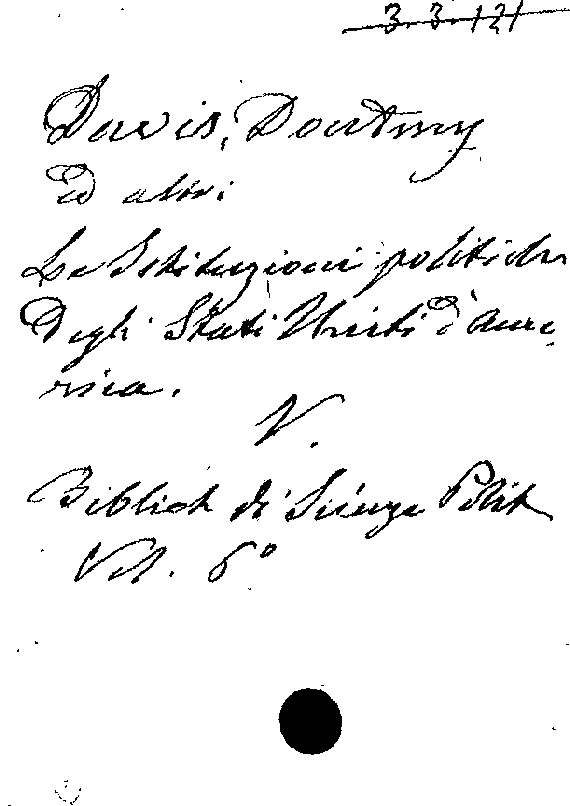 3. 3. 121
Davis, Boutmy
ed altri
Le Istituzioni politiche
Degli Stati Uniti d'Ame,
rica.
V.
Bibliot di Scienze Polit
Vol. 6°